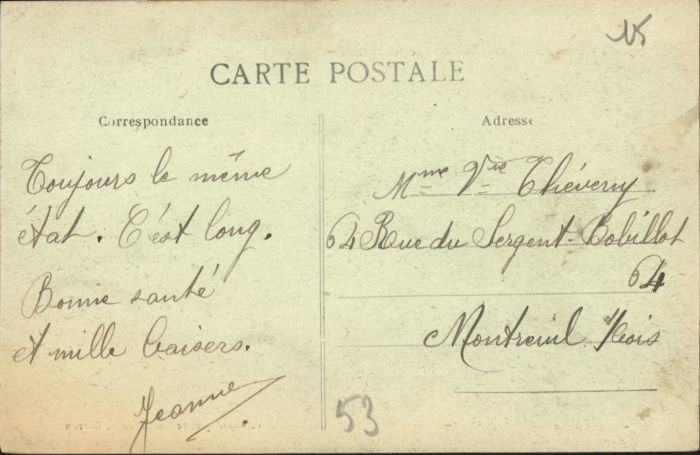 CARTE POSTALE
Correspondance
Toujours le même
état. C'est long.
Bonne santé
et mille baisers.
Jeanne
Adresse
Mme Vve Thévery
64 Rue du Sergent-Bobillot
64
Montreuil s/bois
53